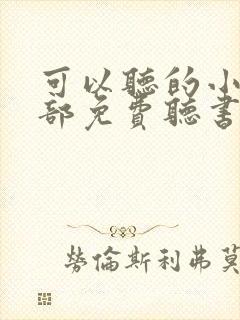 可以聽的小
部免費聽書
勞倫斯利弗莫